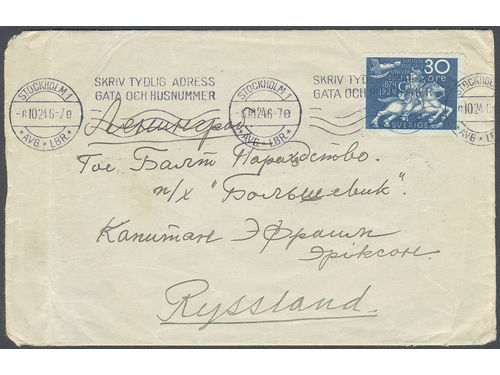 STOCKHOLM 1
-6.10.24 6-7 e
AVG ★ LBR ★
SKRIV TYDLIG ADRESS
GATA OCH HUSNUMMER
STOCKHOLM 1
10.24 6-7 e
★ AVG ★ LBR ★
SKRIV TYD
GATA OCH HU
1
10.24 6-7 e
AVG ★ LBR ★
30
ÖRE
1874
1924
SVERIGE
Ленинград
Гос Балт Пароходство.
п/х "Большевик".
Капитане Эфраим
Эриксоне.
Ryssland.